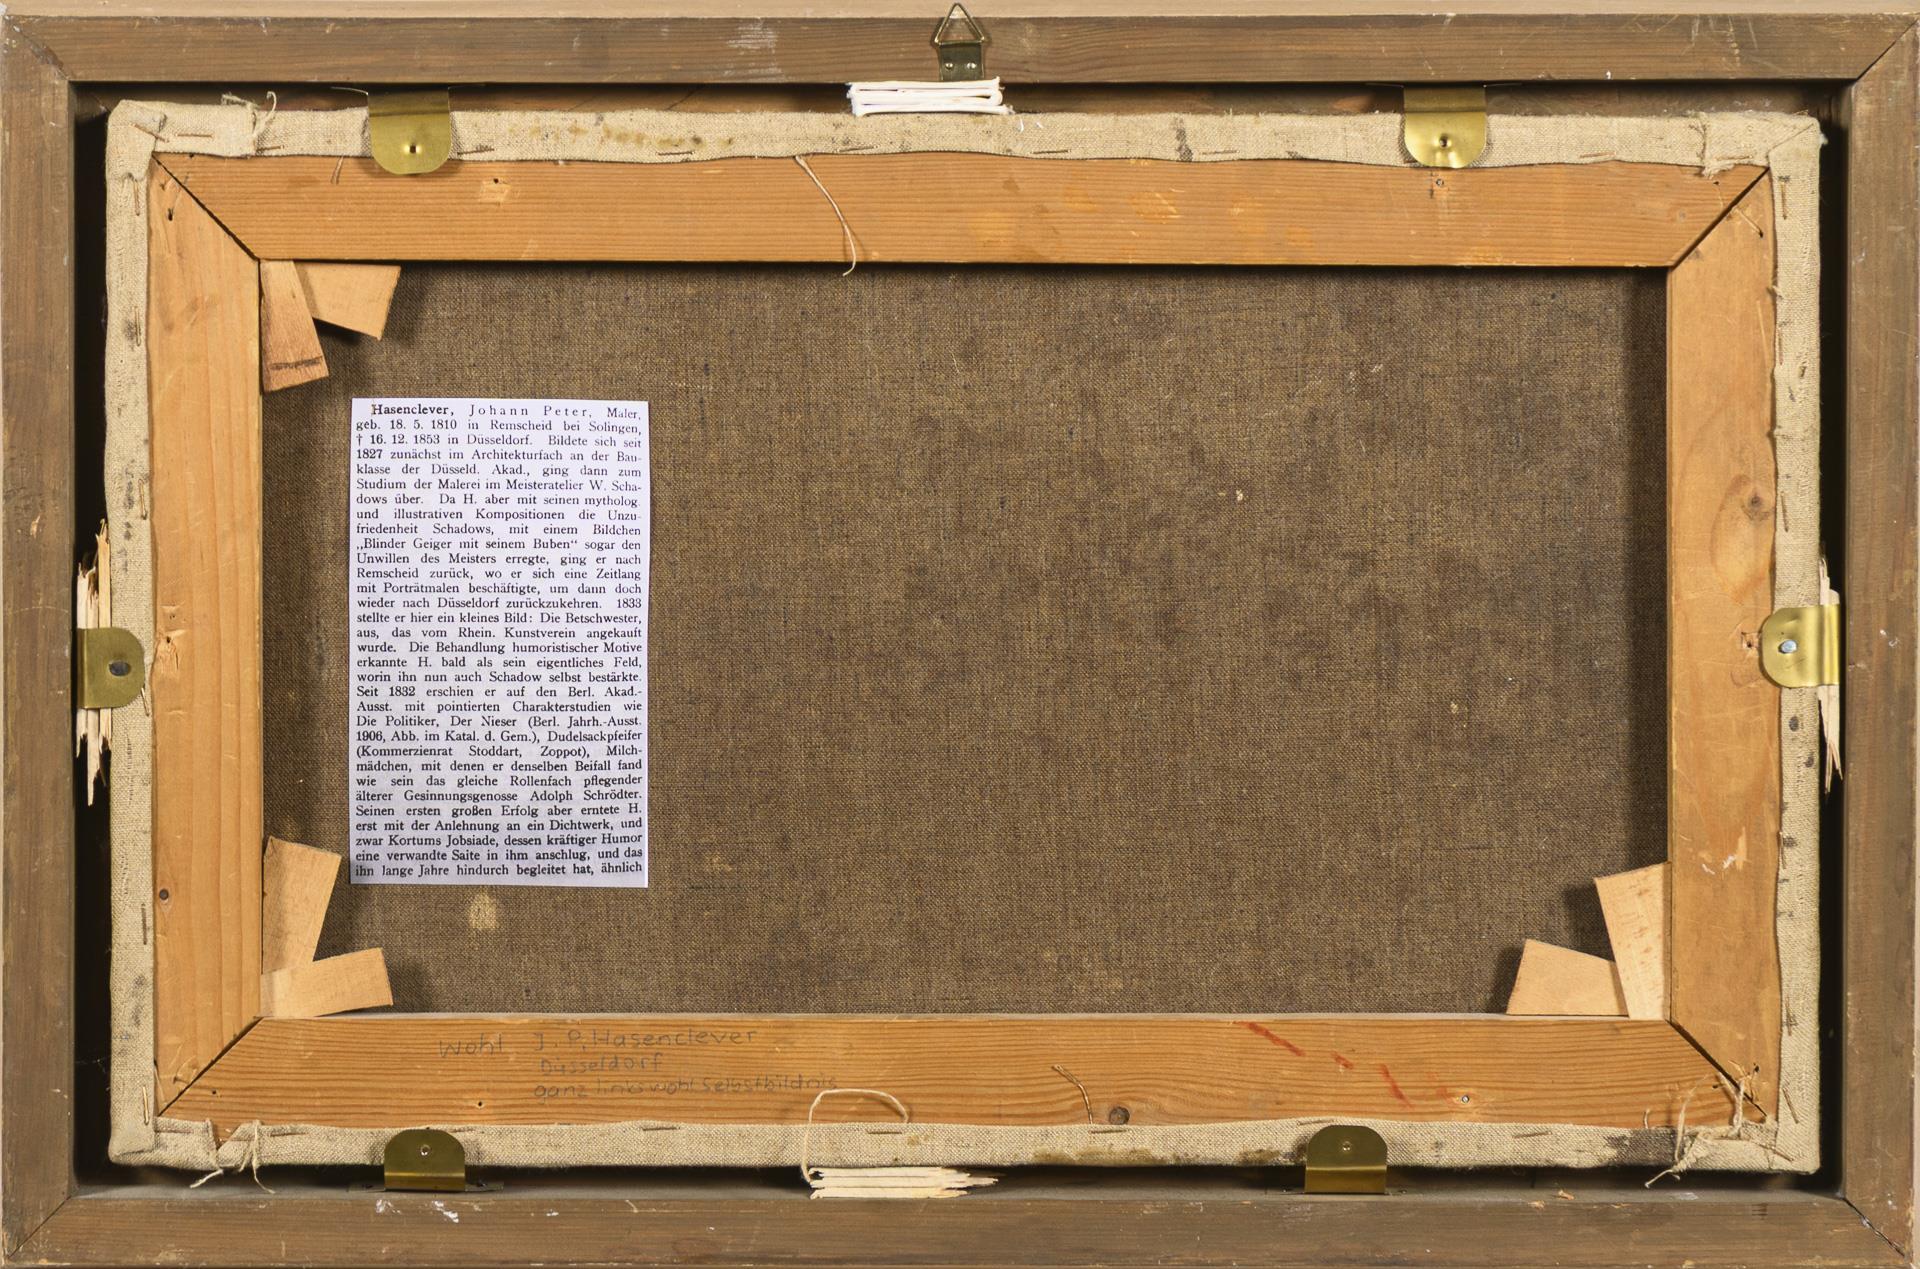 Hasenclever, Johann Peter, Maler,
geb. 18. 5. 1810 in Remscheid bei Solingen,
† 16. 12. 1853 in Düsseldorf. Bildete sich seit
1827 zunächst im Architekturfach an der Bau-
klasse der Düsseld. Akad., ging dann zum
Studium der Malerei im Meisteratelier W. Scha-
dows über. Da H. aber mit seinen mytholog.
und illustrativen Kompositionen die Unzu-
friedenheit Schadows, mit einem Bildchen
„Blinder Geiger mit seinem Buben“ sogar den
Unwillen des Meisters erregte, ging er nach
Remscheid zurück, wo er sich eine Zeitlang
mit Porträtmalen beschäftigte, um dann doch
wieder nach Düsseldorf zurückzukehren. 1833
stellte er hier ein kleines Bild: Die Betschwester,
aus, das vom Rhein. Kunstverein angekauft
wurde. Die Behandlung humoristischer Motive
erkannte H. bald als sein eigentliches Feld,
worin ihn nun auch Schadow selbst bestärkte.
Seit 1832 erschien er auf den Berl. Akad.-
Ausst. mit pointierten Charakterstudien wie
Die Politiker, Der Nieser (Berl. Jahrh.-Ausst.
1906, Abb. im Katal. d. Gem.), Dudelsackpfeifer
(Kommerzienrat Stoddart, Zoppot), Milch-
mädchen, mit denen er denselben Beifall fand
wie sein das gleiche Rollenfach pflegender
älterer Gesinnungsgenosse Adolph Schrödter.
Seinen ersten großen Erfolg aber erntete H.
erst mit der Anlehnung an ein Dichtwerk, und
zwar Kortums Jobsiade, dessen kräftiger Humor
eine verwandte Saite in ihm anschlug, und das
ihn lange Jahre hindurch begleitet hat, ähnlich
Wohl J. P. Hasenclever
Düsseldorf
ganz links wohl Selbstbildnis